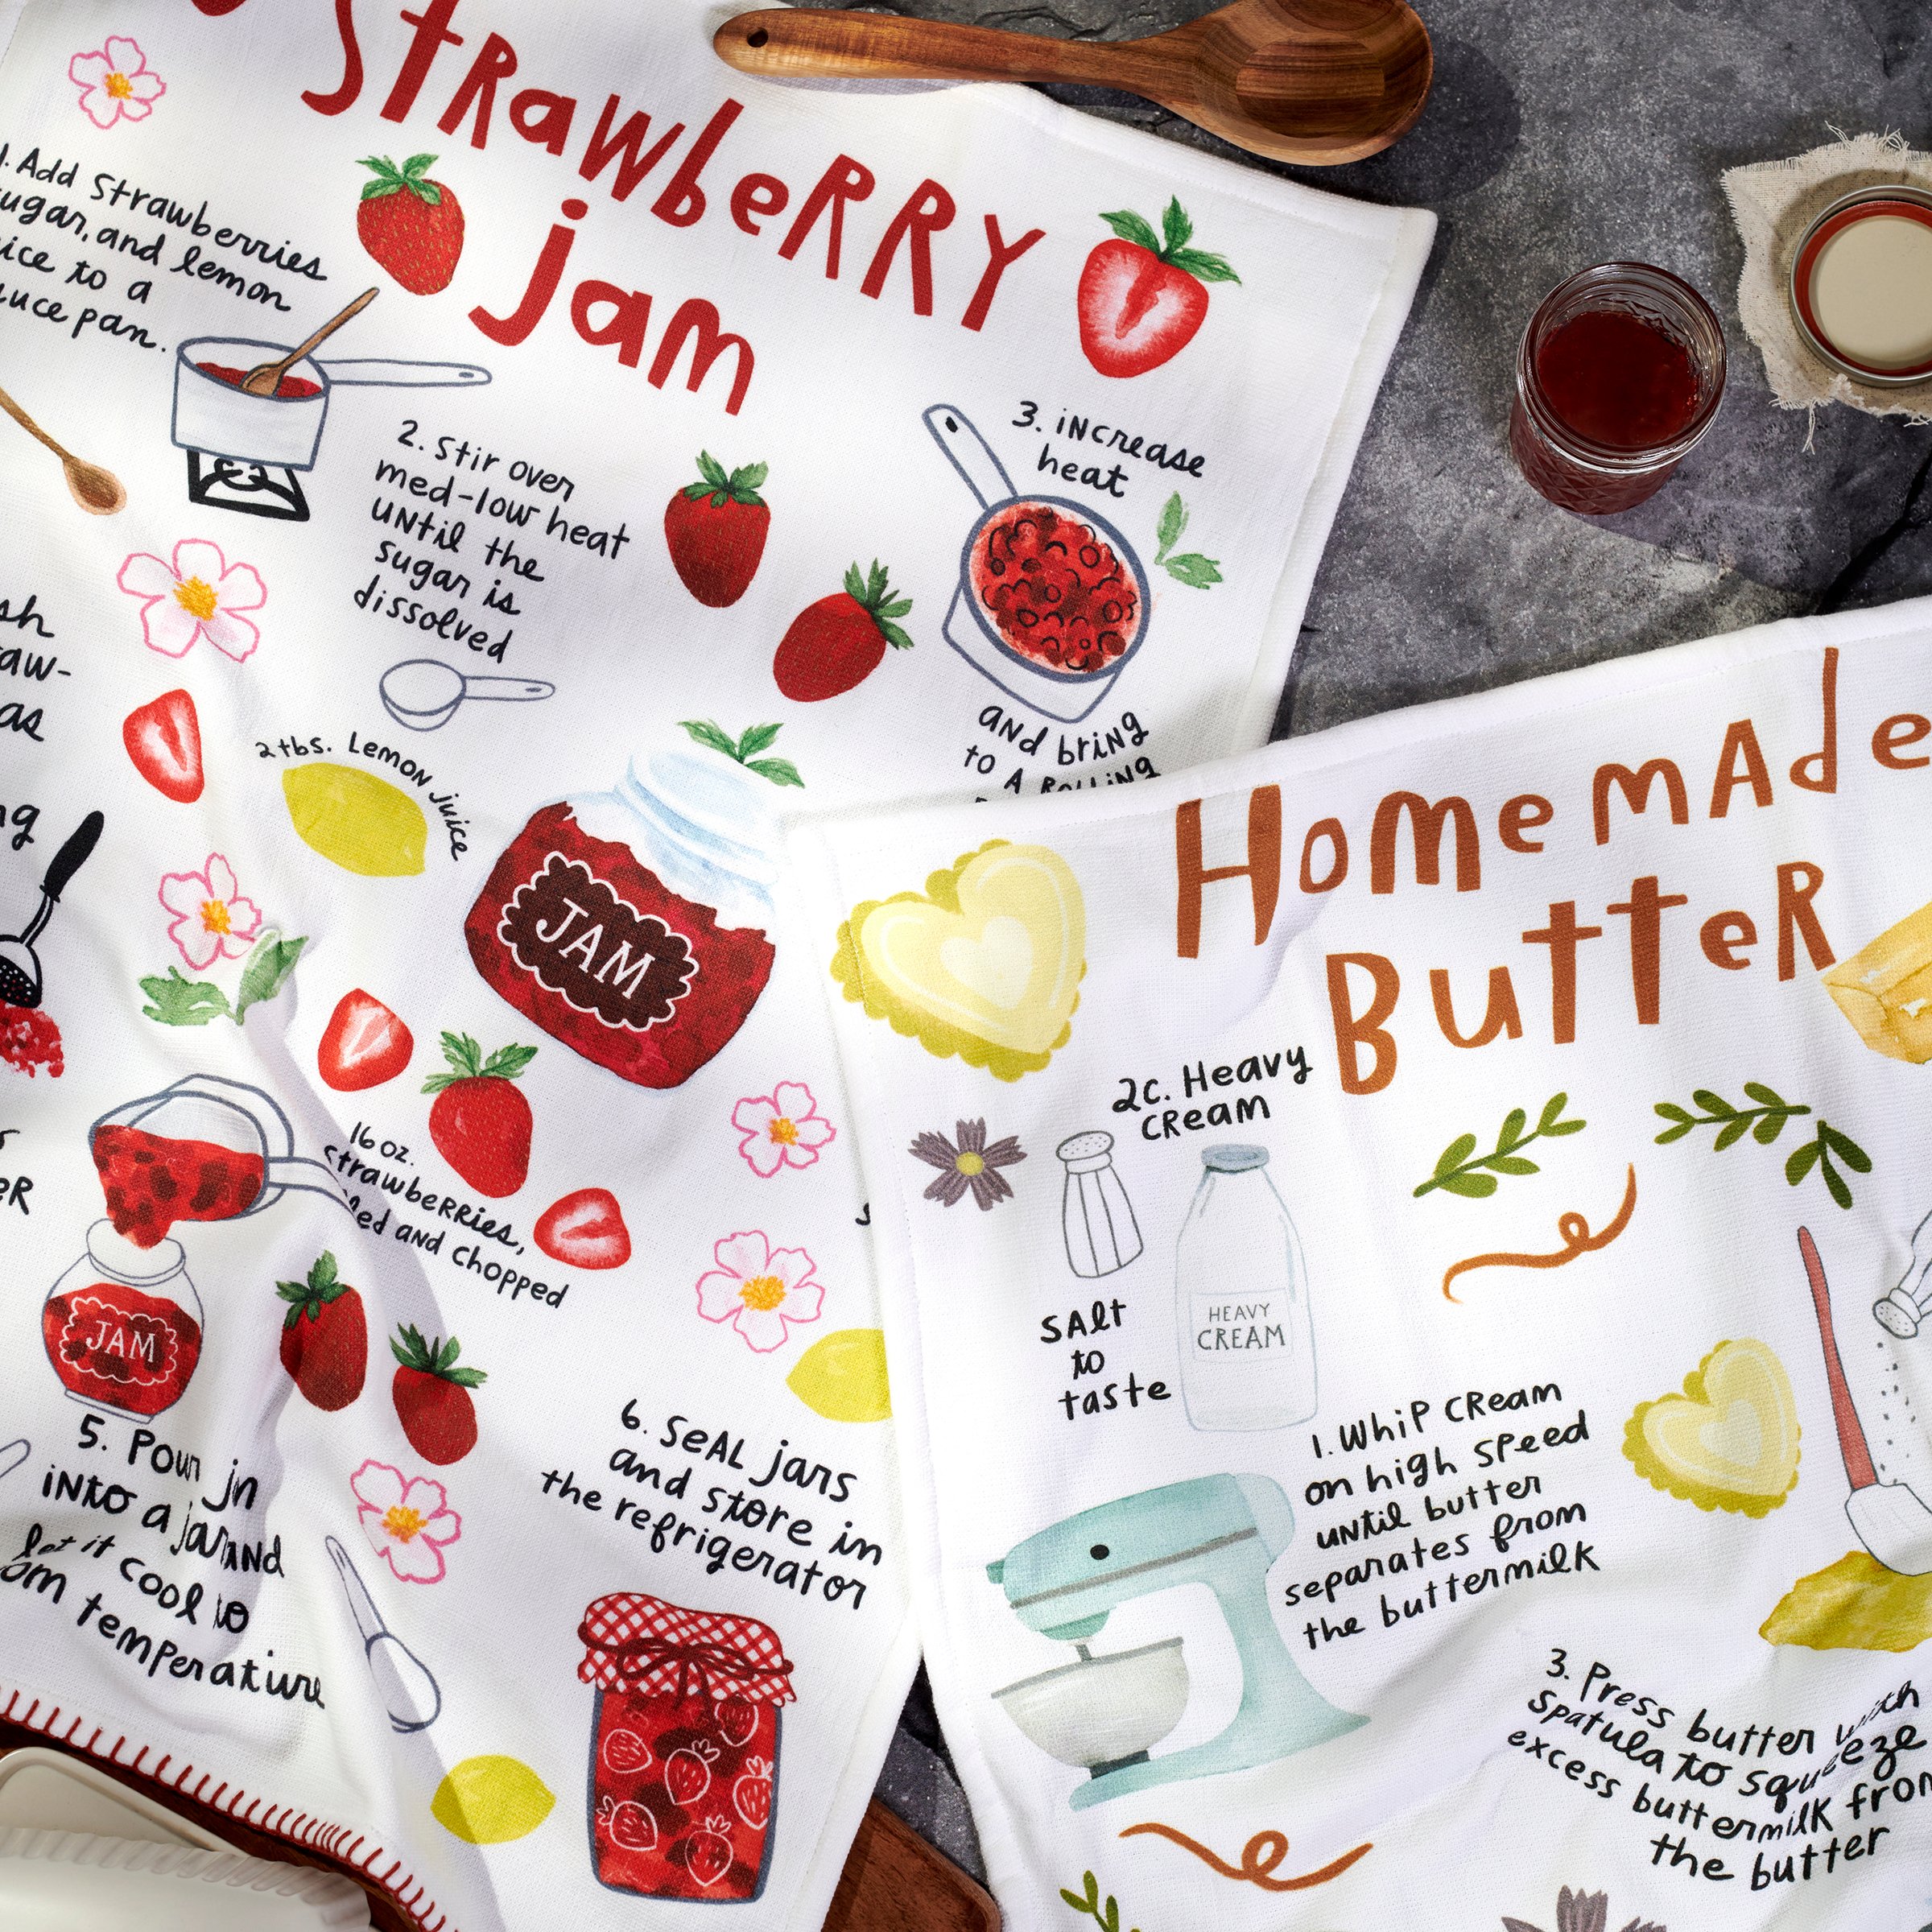 Strawberry
Jam
1. Add Strawberries
sugar, and lemon
juice to a
sauce pan.
2. Stir over
med-low heat
until the
sugar is
dissolved
3. increase
heat
and bring
to A Rolling
2 tbs. Lemon juice
JAM
16 oz.
strawberries,
and chopped
JAM
5. Pour
into a jar and
let it cool to
temperature
6. Seal jars
and store in
the refrigerator
Homemade
Butter
2c. Heavy
Cream
Salt
to
taste
HEAVY
CREAM
1. Whip Cream
on high speed
until butter
separates from
the buttermilk
3. Press butter with
spatula to squeeze
excess buttermilk from
the butter